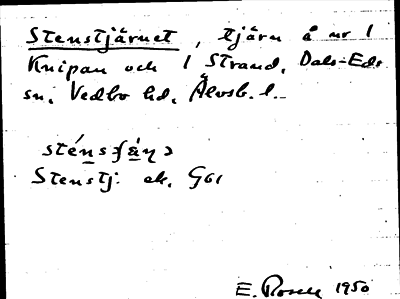 Stenstjärnet, tjärn å nr 1
Knipan och 1 Strand, Dals-Eds
sn, Vedbo hd, Älvsb. l.
Stenstj. ek. G61
E. Rosell 1950